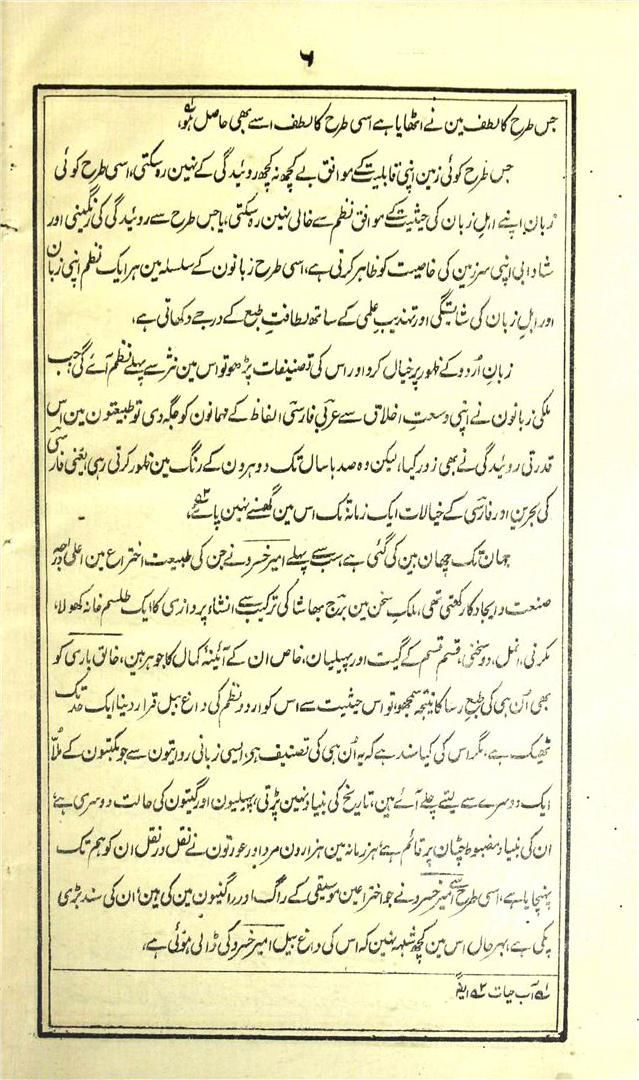 ۶
جس طرح کا لطف مین نے اٹھایا ہے اسی طرح کا لطف اسے بھی حاصل ہو،
جس طرح کوئی زمین اپنی قابلیت کے موافق بے کچھ نہ کچھ روئیدگی کے نہین رہ سکتی، اسی طرح کوئی
زبان اپنے اہلِ زبان کی حیثیت کے موافق نظم سے خالی نہین رہ سکتی، یا جس طرح سے روئیدگی کی رنگینی اور
شادابی اپنی سرزمین کی خاصیت کو ظاہر کرتی ہے، اسی طرح زبانون کے سلسلہ مین ہر ایک نظم اپنی زبان
اور اہلِ زبان کی شایستگی اور تہذیبِ علمی کے ساتھ لطافتِ طبع کے درجے دکھاتی ہے،
زبانِ اُردو کے ظہور پر خیال کرو اور اس کی تصنیفات پڑھو تو اس مین نثر سے پہلے نظم آئے گی، جب
ملکی زبانون نے اپنی وسعتِ اخلاق سے عربی فارسی الفاظ کے مہمانون کو جگہ دی تو طبیعتون مین اس
قدرتی روئیدگی نے بھی زور کیا، لیکن وہ صدہا سال تک دوہرون کے رنگ مین ظہور کرتی رہی، یعنی فارسی
کی بحرین اور فارسی کے خیالات ایک زمانہ تک اس مین گھسنے نہین پائے،
جہان تک چھان بین کی گئی ہے، سب سے پہلے امیر خسرو نے جن کی طبیعت اختراع مین اعلیٰ درجہ
صنعت و ایجاد کا رکھتی تھی، ملکِ سخن مین برج بھاشا کی ترکیب سے انشاء پردازی کا ایک طلسم خانہ کھولا،
مکرنی، انمل، دوسخنی، قسم قسم کے گیت اور پہیلیان، خاص ان کے آئینۂ کمال کا جوہر ہین، خالق باری کو
بھی اُن ہی کی طبعِ رسا کا نتیجہ سمجھو، تو اس حیثیت سے اس کو اردو نظم کی داغ بیل قرار دینا ایک حد تک
ٹھیک ہے، مگر اس کی کیا سند ہے کہ یہ اُن ہی کی تصنیف ہی، ایسی زبانی روایتون سے جو مکتبون کے ملّا
ایک دوسرے سے لیتے چلے آئے ہین، تاریخ کی بنیاد نہین پڑتی، پہیلیون اور گیتون کی حالت دوسری ہے،
ان کی بنیاد مضبوط چٹان پر قائم ہے، ہر زمانہ مین ہزارون مرد اور عورتون نے نقل در نقل ان کو ہم تک
پہنچایا ہے، اسی طرح سے امیر خسرو نے جو اختراعین موسیقی کے راگ اور راگنیون مین کی ہین، ان کی سند بڑی
پکی ہے، بہرحال اس مین کچھ شبہہ نہین کہ اس کی داغ بیل امیر خسرو کی ڈالی ہوئی ہے،
۱؎ آب حیات ۲؎ ایضاً